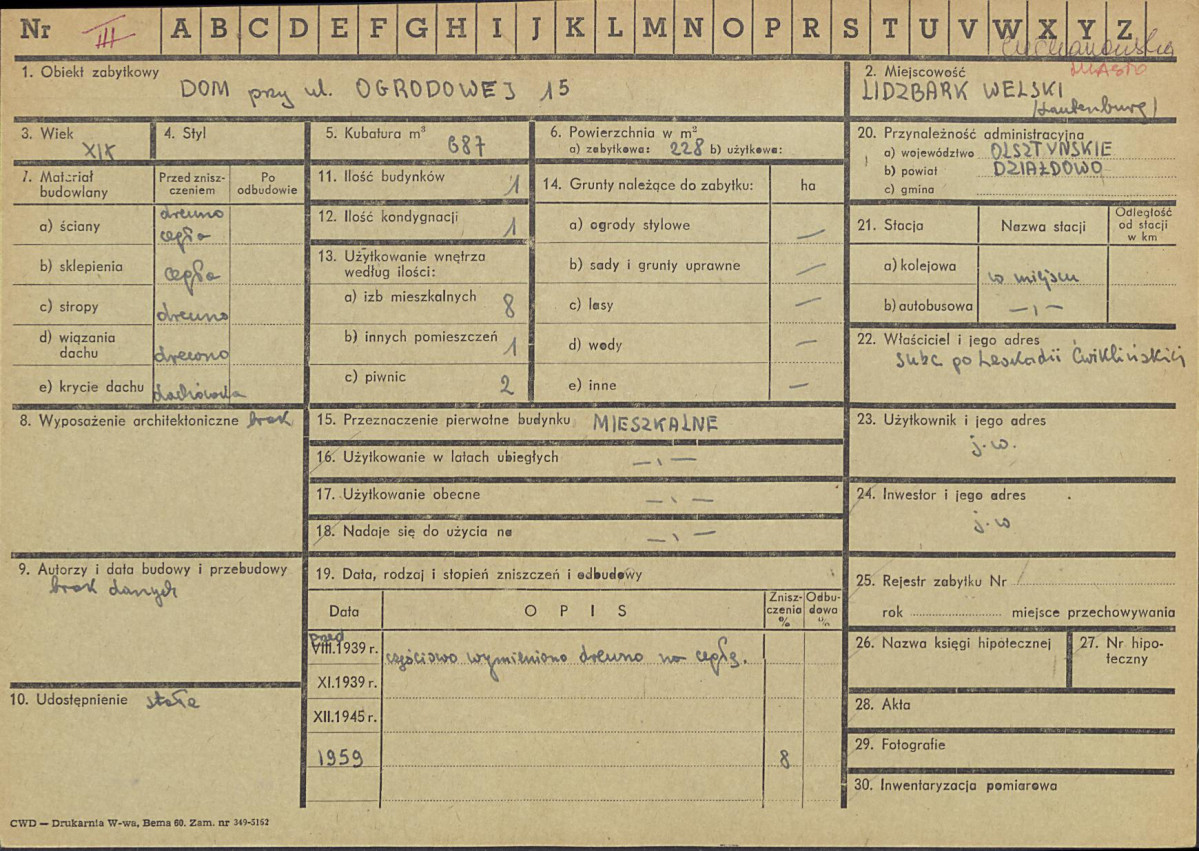 Nr III A B C D E F G H I J K L M N O P R S T U V W X Y Z
Ciechanowskie
MIASTO
1. Obiekt zabytkowy
DOM przy ul. OGRODOWEJ 15
2. Miejscowość
LIDZBARK WELSKI
(Lautenburg)
3. Wiek
XIX
4. Styl
5. Kubatura m³
687
6. Powierzchnia w m²
a) zabytkowa: 228 b) użytkowa:
20. Przynależność administracyjna
a) województwo OLSZTYŃSKIE
b) powiat DZIAŁDOWO
c) gmina
7. Materiał budowlany
Przed zniszczeniem
Po odbudowie
a) ściany drewno cegła
b) sklepienia cegła
c) stropy drewno
d) wiązania dachu drewno
e) krycie dachu dachówka
11. Ilość budynków 1
12. Ilość kondygnacji 1
13. Użytkowanie wnętrza według ilości:
a) izb mieszkalnych 8
b) innych pomieszczeń 1
c) piwnic 2
14. Grunty należące do zabytku: ha
a) ogrody stylowe —
b) sady i grunty uprawne —
c) lasy —
d) wody —
e) inne —
21. Stacja
Nazwa stacji
Odległość od stacji w km
a) kolejowa w miejscu
b) autobusowa — „ —
22. Właściciel i jego adres
sukc. po Leokadii Ćwiklińskiej
8. Wyposażenie architektoniczne brak
15. Przeznaczenie pierwotne budynku MIESZKALNE
16. Użytkowanie w latach ubiegłych — „ —
17. Użytkowanie obecne — „ —
18. Nadaje się do użycia na — „ —
23. Użytkownik i jego adres
j.w.
24. Inwestor i jego adres
j.w
9. Autorzy i data budowy i przebudowy
brak danych
19. Data, rodzaj i stopień zniszczeń i odbudowy
Data
OPIS
Zniszczenia %
Odbudowa %
przed
VIII.1939 r. częściowo wymieniono drewno na cegłę.
XI.1939 r.
XII.1945 r.
1959 8
25. Rejestr zabytku Nr
rok miejsce przechowywania
26. Nazwa księgi hipotecznej
27. Nr hipoteczny
10. Udostępnienie stałe
28. Akta
29. Fotografie
30. Inwentaryzacja pomiarowa
CWD — Drukarnia W-wa, Bema 60. Zam. nr 349-5162